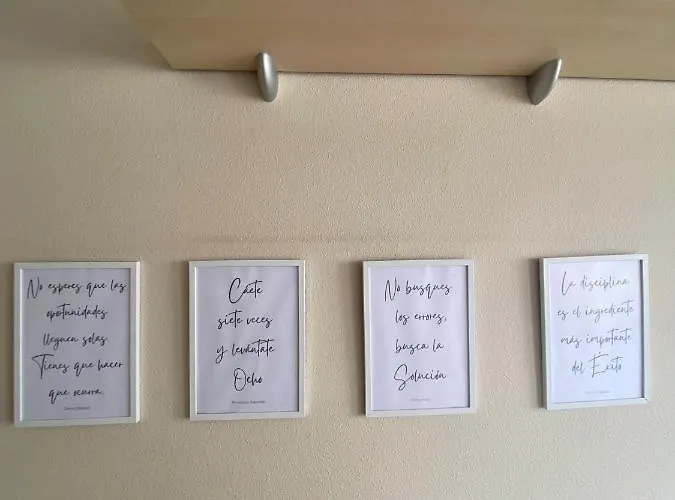 No esperes que las
oportunidades
lleguen solas.
Tienes que hacer
que ocurra.
Cáete
siete veces
y levántate
Ocho
No busques
los errores,
busca la
Solución
La disciplina
es el ingrediente
más importante
del Éxito